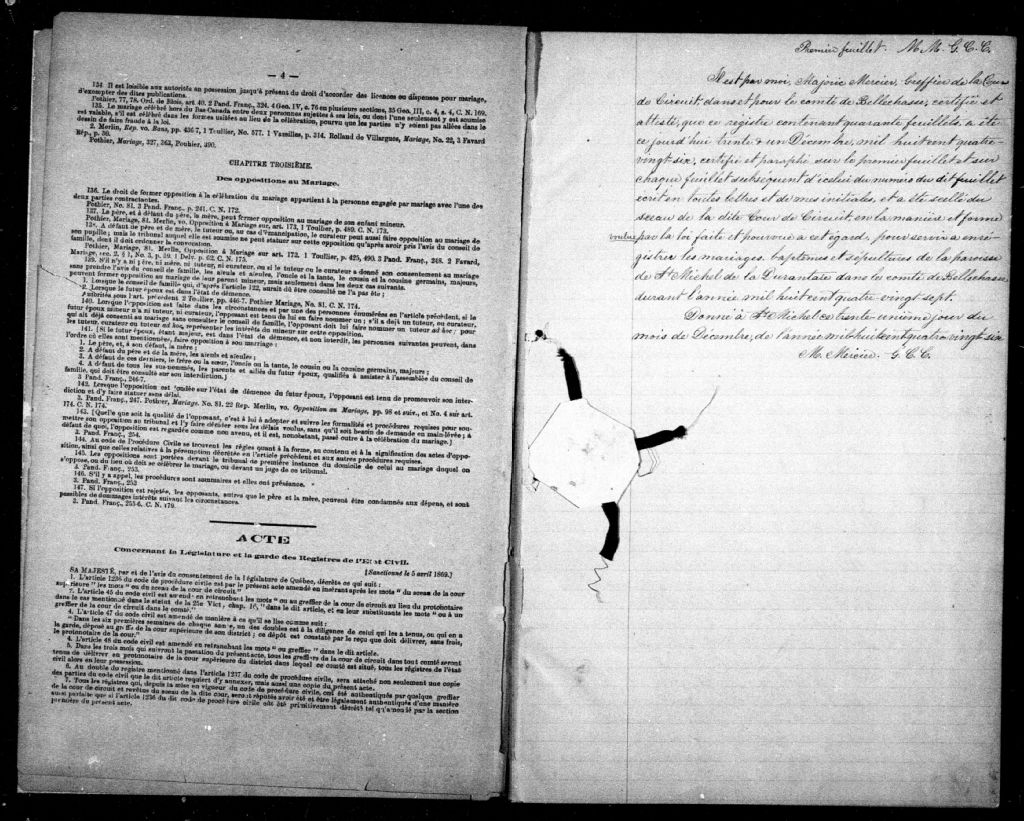 — 4 —
134. Il est loisible aux autorités en possession jusqu'à présent du droit d'accorder des licences ou dispenses pour mariage,
d'exempter des dites publications.
Pothier, 77, 78. Ord. de Blois, art. 40. 2 Pand. Franç., 324. 4 Geo. IV, c. 76 en plusieurs sections, 35 Geo. III, c. 4, s. 4, C. N. 169.
135. Le mariage célébré hors du Bas Canada entre deux personnes sujettes à ses lois, ou dont l'une seulement y est soumise
est valable, s'il est célébré dans les formes usitées au lieu de la célébration, pourvu que les parties n'y soient pas allées dans le
dessein de faire fraude à la loi.
2. Merlin, Rep. vo. Bans, pp. 436 7, 1 Toullier, No. 577. 1 Vazeilles, p. 314. Rolland de Villargues, Mariage, No. 22, 3 Favard
Rép., p. 50.
Pothier, Mariage, 327, 363, Pouhier, 390.
CHAPITRE TROISIÈME.
Des oppositions au Mariage.
136. Le droit de former opposition à la célébration du mariage appartient à la personne engagée par mariage avec l'une des
deux parties contractantes.
Pothier, No. 81. 3 Pand. Franç., p. 241. C. N. 172.
137. Le père, et à défaut du père, la mère, peut former opposition au mariage de son enfant mineur.
Pothier, Mariage, 81. Merlin, vo. Opposition à Mariage sur, art. 173, 1 Toullier, p. 489. C. N. 173.
138. A défaut de père et de mère, le tuteur ou, au cas d'émancipation, le curateur peut aussi faire opposition au mariage de
son pupille; mais le tribunal auquel elle est soumise ne peut statuer sur cette opposition qu'après avoir pris l'avis du conseil de
famille, dont il doit ordonner la convocation.
Pothier, Mariage, 81. Merlin, Opposition à Mariage sur art. 173. 1 Toullier, p. 425, 490. 3 Pand. Franç., 248. 2 Favard,
Mariage, sec. 2, § 1, No. 3, p. 59. 1 Delv. p. 62. C. N. 175.
139. S'il n'y a ni père, ni mère, ni tuteur, ni curateur, ou si le tuteur ou le curateur a donné son consentement au mariage
sans prendre l'avis du conseil de famille, les aïeuls et aïeules, l'oncle et la tante, le cousin et la cousine germains, majeurs,
peuvent former opposition au mariage de leur parent mineur, mais seulement dans les deux cas suivants.
1. Lorsque le conseil de famille qui, d'après l'article 122, aurait dû être consulté ne l'a pas été;
2. Lorsque le futur époux est dans l'état de démence.
140. Lorsque l'opposition est faite dans les circonstances et par une des personnes énumérées en l'article précédent, si le
futur époux mineur n'a ni tuteur, ni curateur, l'opposant est tenu de lui en faire nommer un; s'il a déjà un tuteur, ou curateur,
qui ait déjà consenti au mariage sans consulter le conseil de famille, l'opposant doit lui faire nommer un tuteur ad hoc; pour
les tuteur, curateur ou tuteur ad hoc, représenter les intérêts du mineur sur cette opposition.
141. [Si le futur époux, étant majeur, est dans l'état de démence, et non interdit, les personnes suivantes peuvent, dans
l'ordre où elles sont mentionnées, faire opposition à son mariage:
1. Le père, et, à son défaut, la mère;
2. A défaut du père et de la mère, les aïeuls et aïeules;
3. A défaut de ces derniers, le frère ou la sœur, l'oncle ou la tante, le cousin ou la cousine germains, majeurs;
4. A défaut de tous les sus-nommés, les parents et alliés du futur époux, qualifiés à assister à l'assemblée du conseil de
famille, qui doit être consulté sur son interdiction.]
3 Pand. Franç., 246-7.
142. Lorsque l'opposition est fondée sur l'état de démence du futur époux, l'opposant est tenu de promouvoir son inter-
diction et d'y faire statuer sans délai.
3. Pand. Franç., 247. Pothier, Mariage. No. 81. 22 Rep. Merlin, vo. Opposition au Mariage, pp. 98 et suiv., et No. 4 sur art.
174. C. N. 174.
143. [Quelle que soit la qualité de l'opposant, c'est à lui à adopter et suivre les formalités et procédures requises pour sou-
mettre son opposition au tribunal et l'y faire décider sous les délais voulus, sans qu'il soit besoin de demande en main-lévée; à
défaut de quoi, l'opposition est regardée comme non avenu, et il est, nonobstant, passé outre à la célébration du mariage.]
3. Pand. Franç., 254.
144. Au code de Procédure Civile se trouvent les règles quant à la forme, au contenu et à la signification des actes d'oppo-
sition, ainsi que celles relatives à la péremption décrétée en l'article précédent et aux autres procédures requises.
145. Les oppositions sont portées devant le tribunal de première instance du domicile de celui au mariage duquel on
s'oppose, ou du lieu où doit se célébrer le mariage, ou devant un juge de ce tribunal.
3. Pand. Franç., 253.
146. S'il y a appel, les procédures sont sommaires et elles ont préséance.
3. Pand. Franç., 253
147. Si l'opposition est rejetée, les opposants, autres que le père et la mère, peuvent être condamnés aux dépens, et sont
passibles de dommages intérêts suivant les circonstances.
3. Pand. Franç., 255-6. C. N. 179.
ACTE
Concernant la Législature et la garde des Registres de l'Etat Civil.
[Sanctionné le 5 avril 1869.]
SA MAJESTÉ, par et de l'avis du consentement de la législature de Québec, décrète ce qui suit:
1. L'article 1236 du code de procédure civile est par le présent acte amendé en insérant après les mots "du sceau de la cour
supérieure" les mots "ou du sceau de la cour de circuit."
2. L'article 45 du code civil est amendé en retranchant les mots "ou au greffier de la cour de circuit au lieu du protonotaire
dans le cas mentionné dans le statut de la 25e Vict., chap. 16," dans le dit article, et en leur substituant les mots "ou à un
greffier de la cour de circuit dans le comté."
4. L'article 47 du code civil est amendé de manière à ce qu'il se lise comme suit:
"Dans les six premières semaines de chaque année, un des doubles est à la diligence de celui qui les a tenus, ou qui en a
la garde, déposé au greffe de la cour supérieure de son district; ce dépôt est constaté par le reçu que doit délivrer, sans frais,
le protonotaire de la cour."
4. L'article 48 du code civil est amendé en retranchant les mots "ou greffier" dans le dit article.
5. Dans les trois mois qui suivront la passation du présent acte, tous les greffiers de la cour de circuit dans tout comté seront
tenus de délivrer en protonotaire de la cour supérieure du district dans lequel ce comté est situé, tous les régistres de l'état
civil alors en leur possession.
6. Au double du registre mentionné dans l'article 1237 du code de procédure civile, sera attaché non seulement une copie
des parties du code civil que le dit article requiert d'y annexer, mais aussi une copie du présent acte.
7. Tous les régistres qui, depuis la mise en vigueur du code de procédure civile, ont été authentiqués par quelque greffier
de la cour de circuit et revêtus du sceau de la dite cour, seront réputés avoir été et être légalement authentiqués d'une manière
aussi parfaite que si l'article 1236 du dit code de procédure civile eût été primitivement décrété tel qu'amendé par la section
première du présent acte.
Premier feuillet. M. M. G. C. C.
Il est par moi, Majoric Mercier, Greffier de la Cour
de Circuit dans et pour le comté de Bellechasse, certifié et
attesté, que ce registre contenant quarante feuillets, a été
ce jourd'hui trente & un Décembre, mil huit cent quatre-
vingt six, certifié et paraphé sur le premier feuillet et sur
chaque feuillet subséquent d'icelui du numéro du dit feuillet
écrit en toutes lettres et de mes initiales, et a été scellé du
sceau de la dite Cour de Circuit, en la manière et forme
voulue par la loi faite et pourvue à cet égard, pour servir à enré-
gistrer les mariages, baptêmes et sépultures de la paroisse
de St Michel de la Durantaie dans le comté de Bellechasse,
durant l'année mil huit cent quatre-vingt sept.
Donné à St Michel ce trente-unième jour du
mois de Décembre, de l'année mil huit cent quatre-vingt six
M. Mercier. G. C. C.